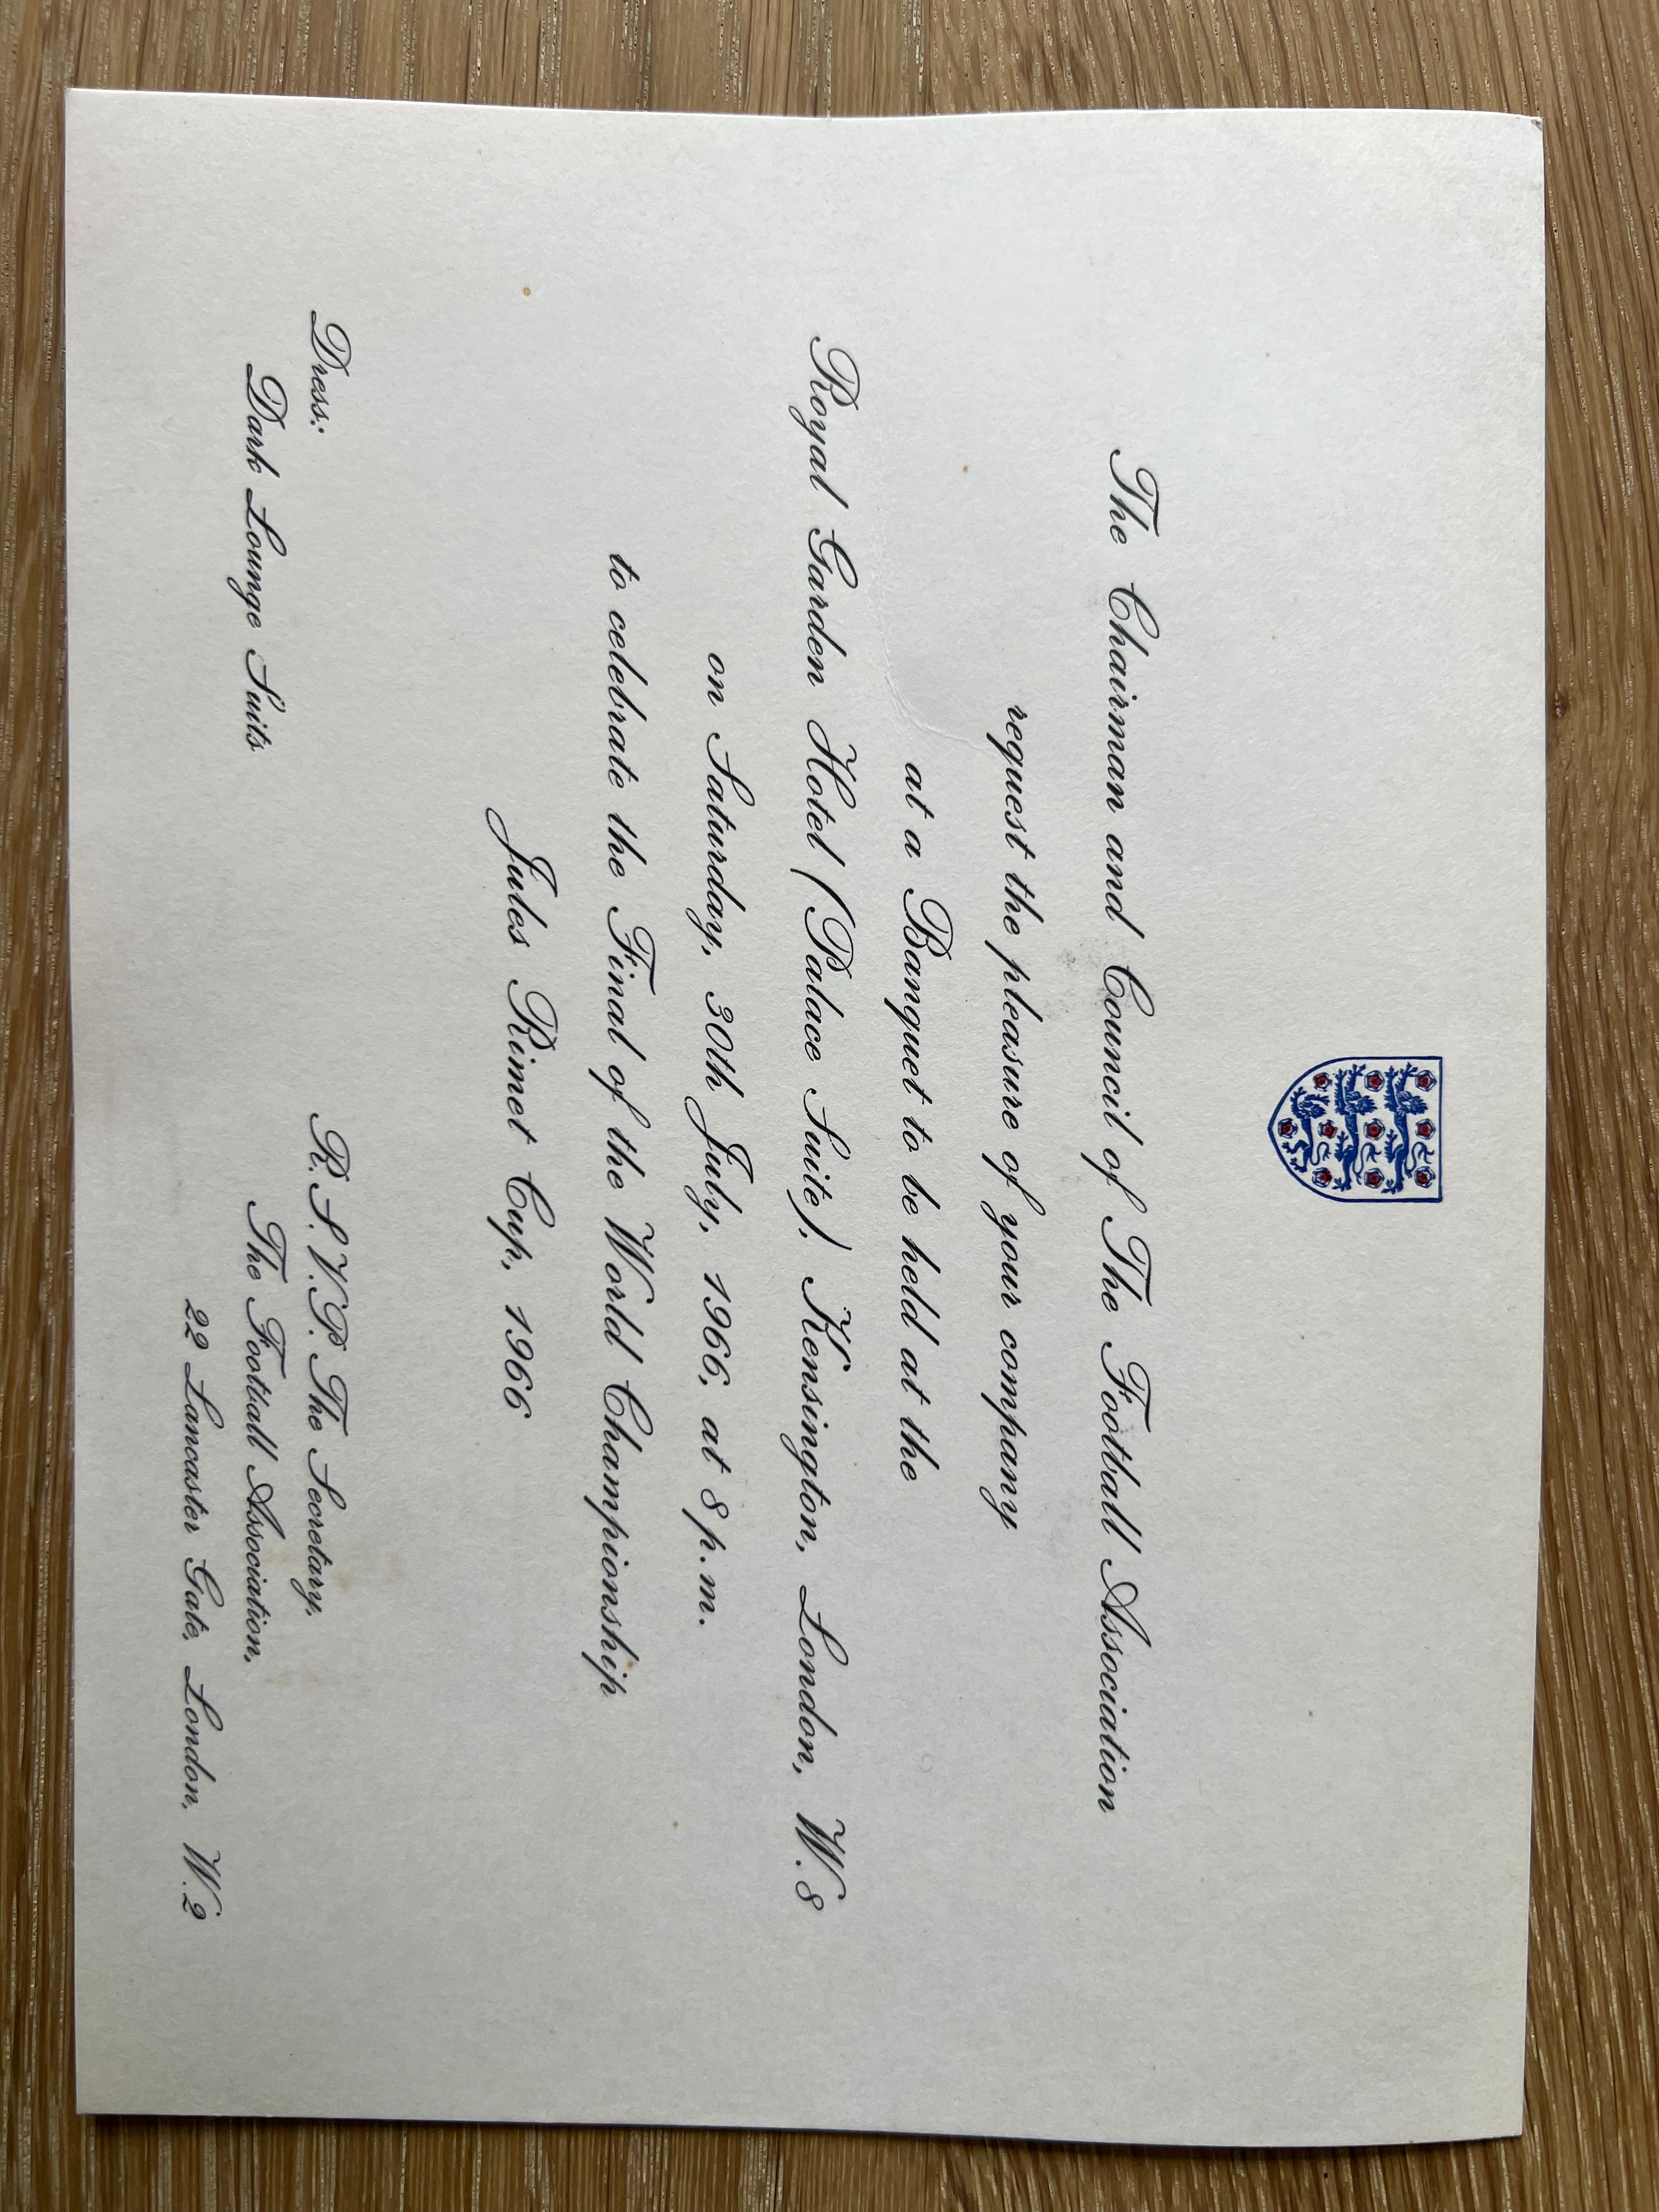 The Chairman and Council of The Football Association
request the pleasure of your company
at a Banquet to be held at the
Royal Garden Hotel (Palace Suite), Kensington, London, W.8
on Saturday, 30th July, 1966, at 8 p.m.
to celebrate the Final of the World Championship
Jules Rimet Cup, 1966
Dress:
Dark Lounge Suits
R.S.V.P. The Secretary,
The Football Association,
22 Lancaster Gate, London, W.2